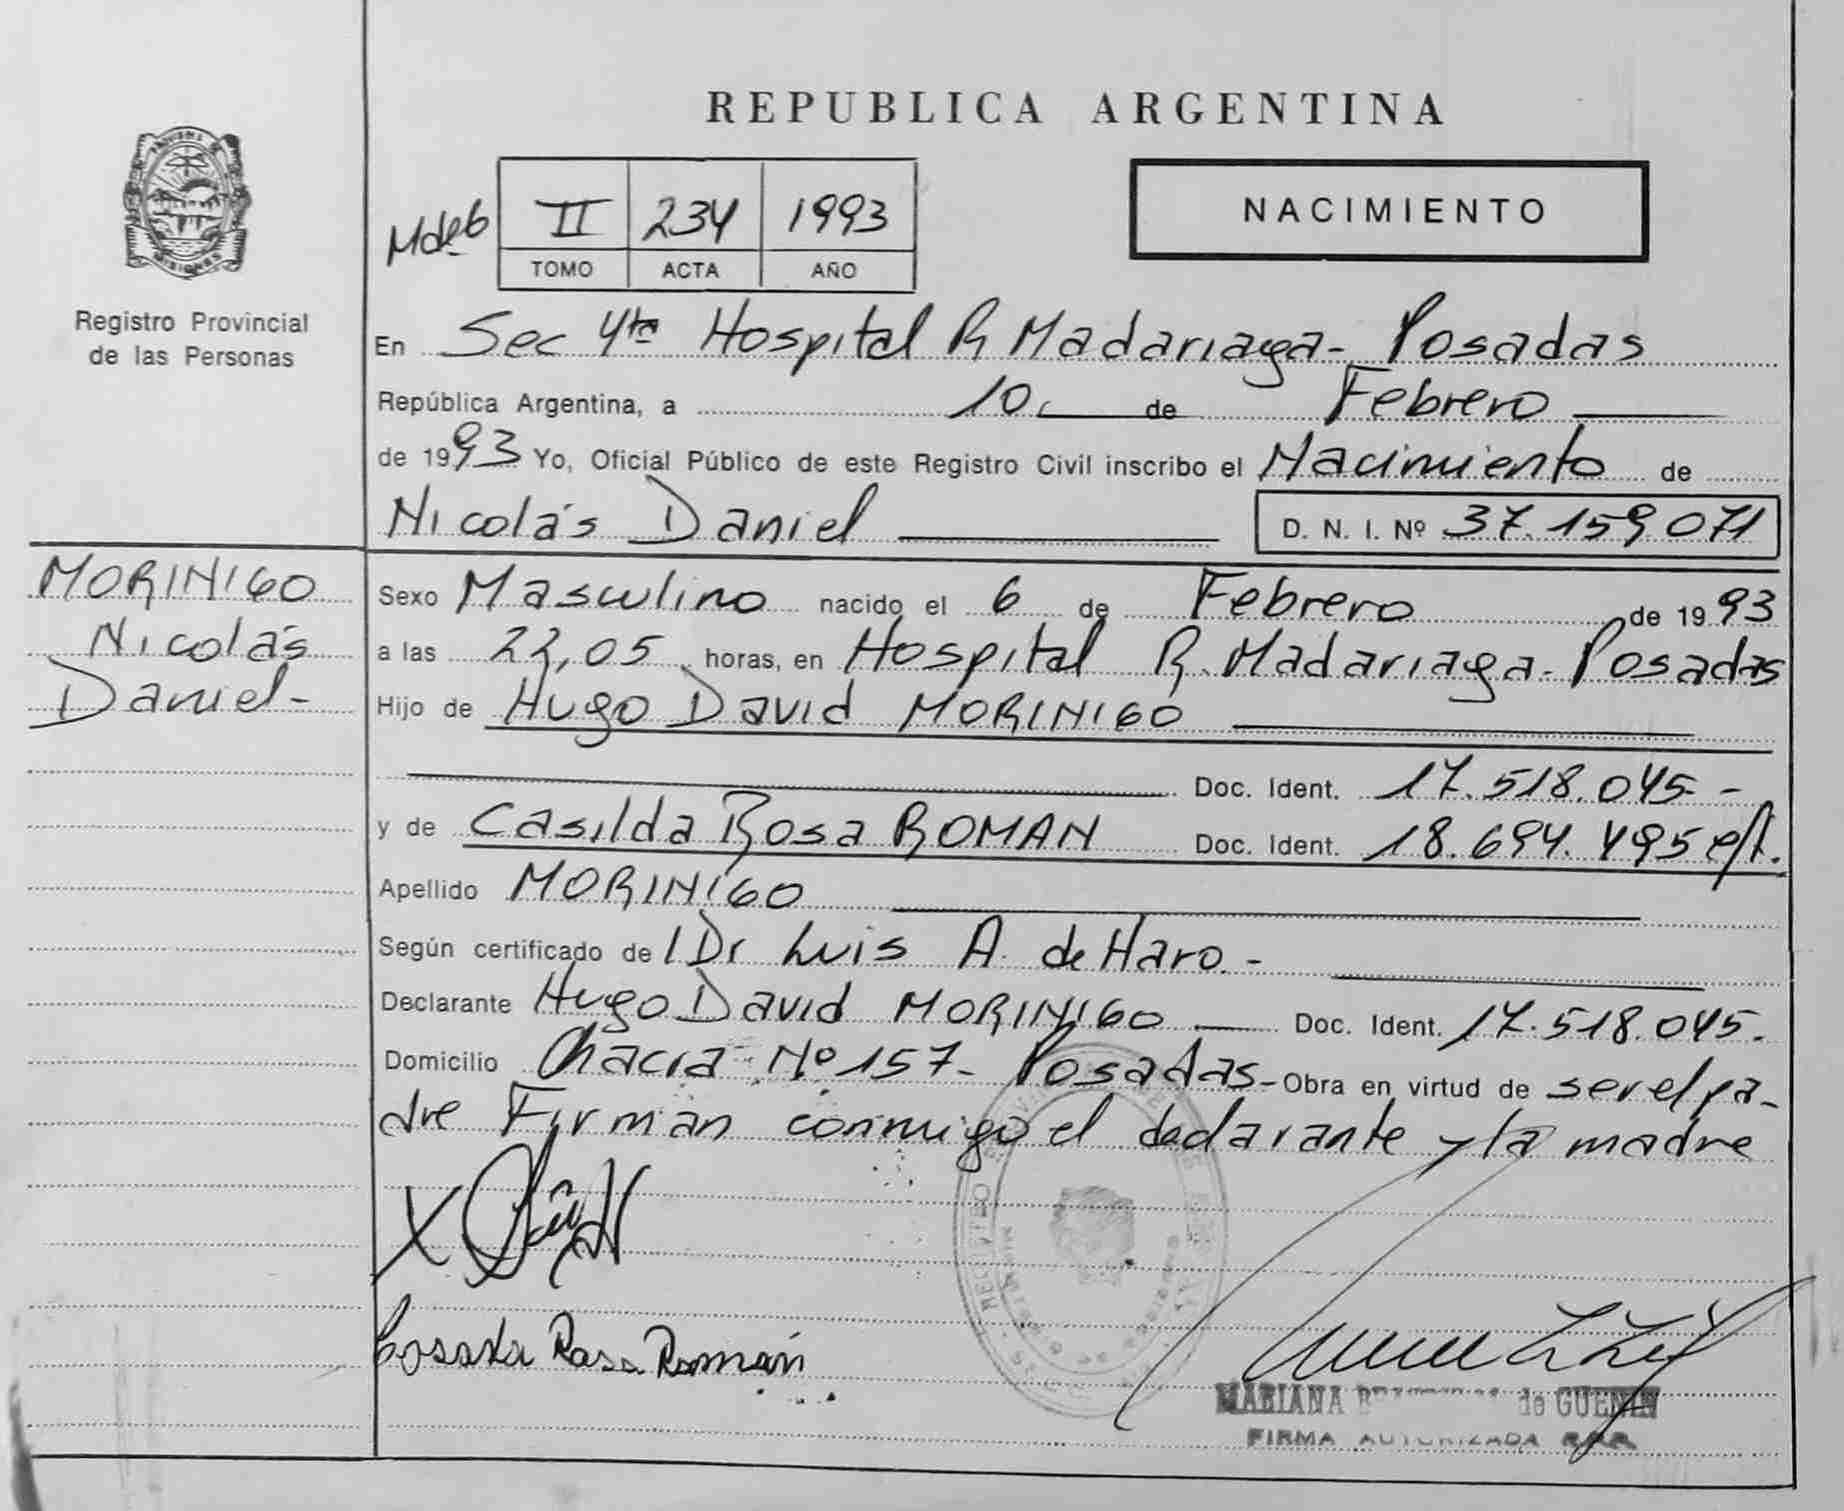 REPUBLICA ARGENTINA
II 234 1993
TOMO ACTA AÑO
NACIMIENTO
MISIONES
Registro Provincial
de las Personas
En Sec 4ta Hospital R Madariaga - Posadas
República Argentina, a 10 de Febrero
de 1993 Yo, Oficial Público de este Registro Civil inscribo el Nacimiento de
Nicolás Daniel D. N. I. Nº 37.159.071
MORINIGO
Nicolás
Daniel-
Sexo Masculino nacido el 6 de Febrero de 1993
a las 22,05 horas, en Hospital R. Madariaga - Posadas
Hijo de Hugo David MORINIGO
Doc. Ident. 17.518.045 -
y de Casilda Rosa ROMAN Doc. Ident. 18.694.495
Apellido MORINIGO
Según certificado de l Dr Luis A. de Haro. -
Declarante Hugo David MORINIGO Doc. Ident. 17.518.045.
Domicilio Chacra Nº 157 - Posadas - Obra en virtud de ser el pa-
dre Firman conmigo el declarante y la madre
X
Rosa Román
MARIANA de GUENIN
FIRMA AUTORIZADA